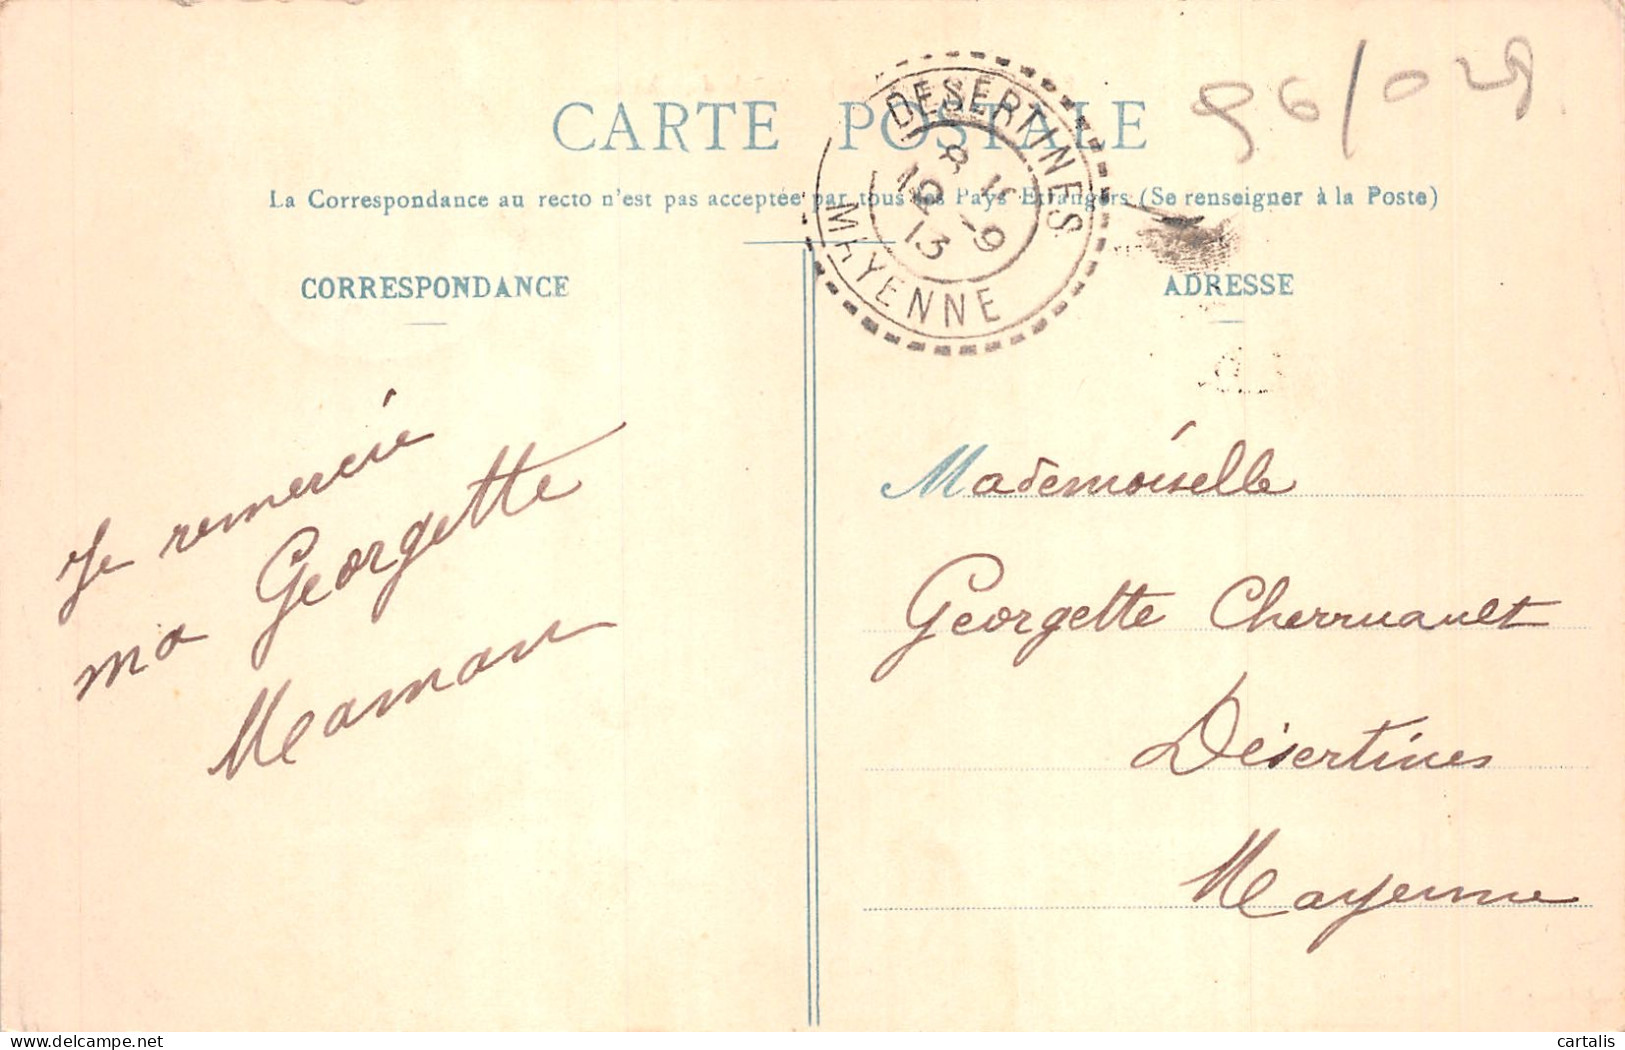 96/029
CARTE POSTALE
La Correspondance au recto n'est pas acceptée par tous les Pays Etrangers (Se renseigner à la Poste)
DESERTINES
12 -9
13
MAYENNE
CORRESPONDANCE
ADRESSE
Je remercie
ma Georgette
Maman
Mademoiselle
Georgette Cherruault
Désertines
Mayenne
delcampe.net
cartalis